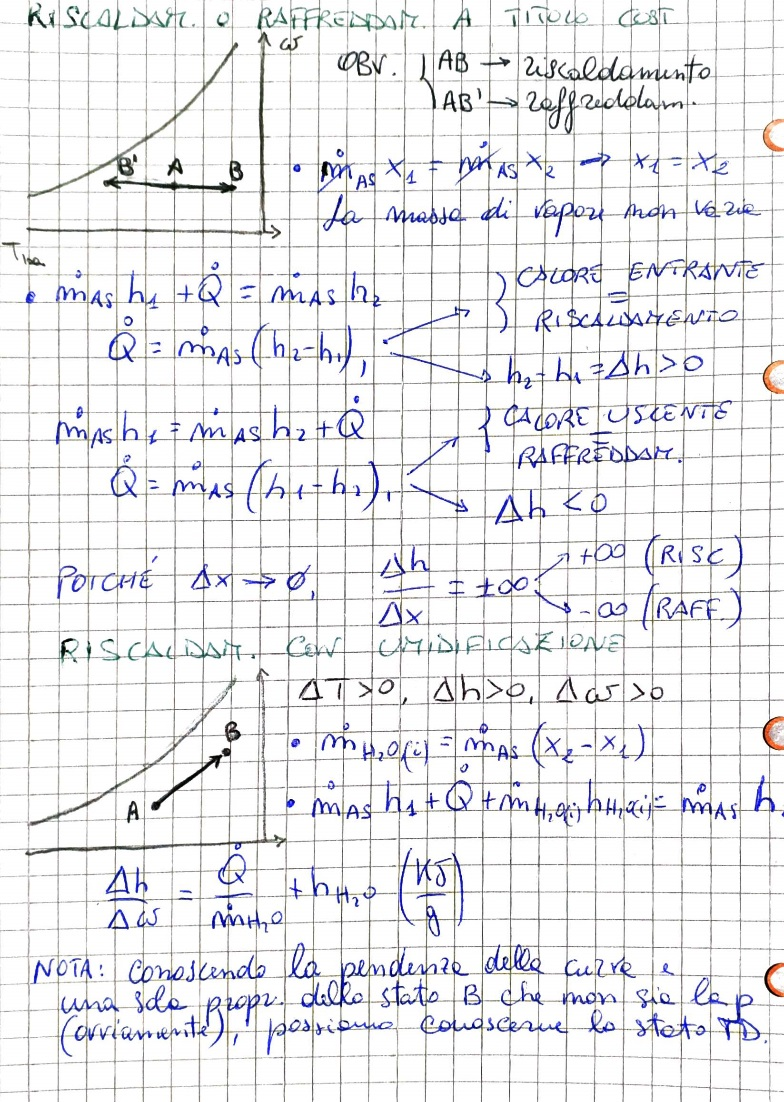 RISCALDAM. O RAFFREDDAM. A TITOLO COST
ω
OBV. { AB → riscaldamento
AB' → raffreddam.
B' A B
• ṁAS x1 = ṁAS x2 → x1 = x2
La massa di vapore non varia
• ṁAS h1 + Q̇ = ṁAS h2
} CALORE ENTRANTE
=
RISCALDAMENTO
Q̇ = ṁAS (h2-h1),
h2-h1 = Δh > 0
ṁAS h1 = ṁAS h2 + Q̇
{ CALORE USCENTE
=
RAFFREDDAM.
Q̇ = ṁAS (h1-h2),
Δh < 0
POICHÉ Δx → 0, Δh/Δx = ±∞
+∞ (RISC)
-∞ (RAFF.)
RISCALDAM. CON UMIDIFICAZIONE
ΔT>0, Δh>0, Δω>0
A B
• ṁH2O(i) = ṁAS (x2-x1)
• ṁAS h1 + Q̇ + ṁH2O(i) hH2O(i) = ṁAS h
Δh/Δω = Q̇/ṁH2O + hH2O (KJ/g)
NOTA: conoscendo la pendenza della curva e
una sola propr. dello stato B che non sia la p
(ovviamente), possiamo conoscerne lo stato TD.